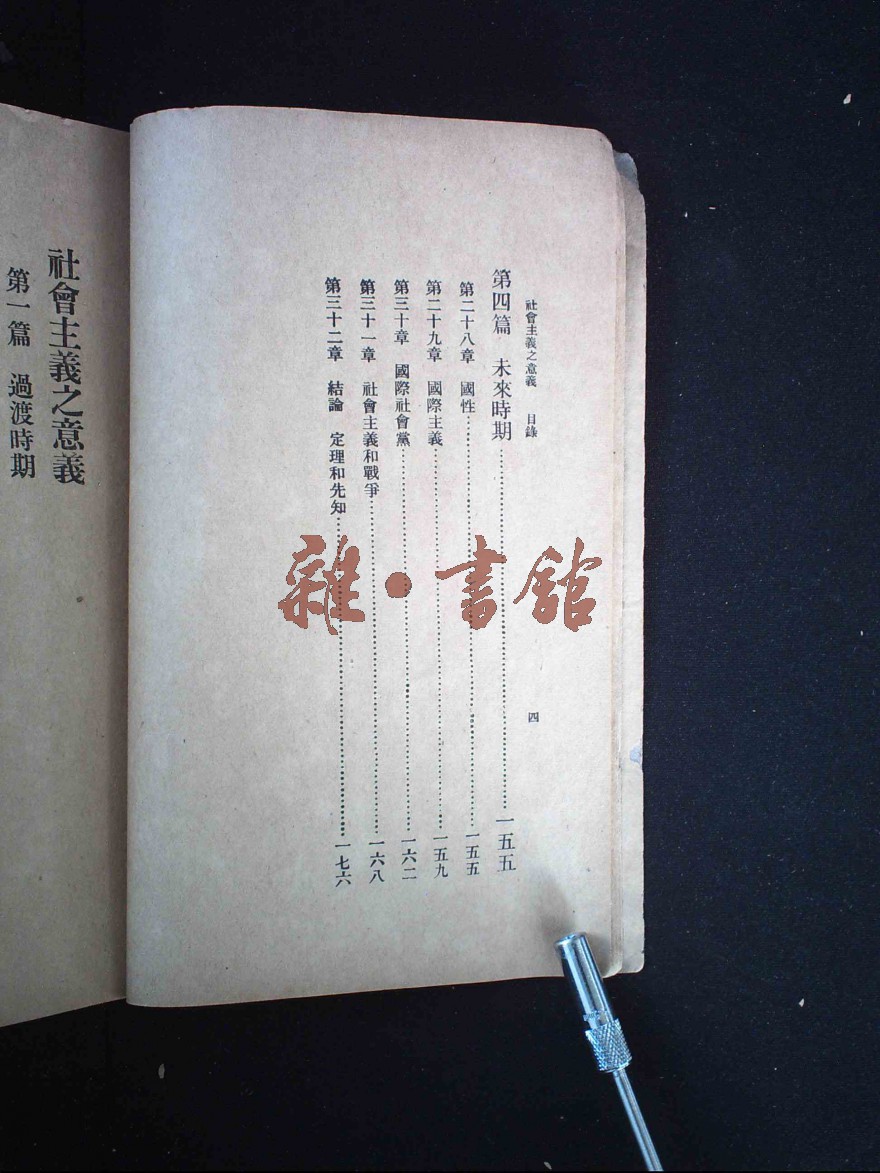 社會主義之意義 目錄 四
第四篇 未來時期⋯⋯一五五
第二十八章 國性⋯⋯一五五
第二十九章 國際主義⋯⋯一五九
第三十章 國際社會黨⋯⋯一六二
第三十一章 社會主義和戰爭⋯⋯一六八
第三十二章 結論 定理和先知⋯⋯一七六
社會主義之意義
第一篇 過渡時期
雜·書館